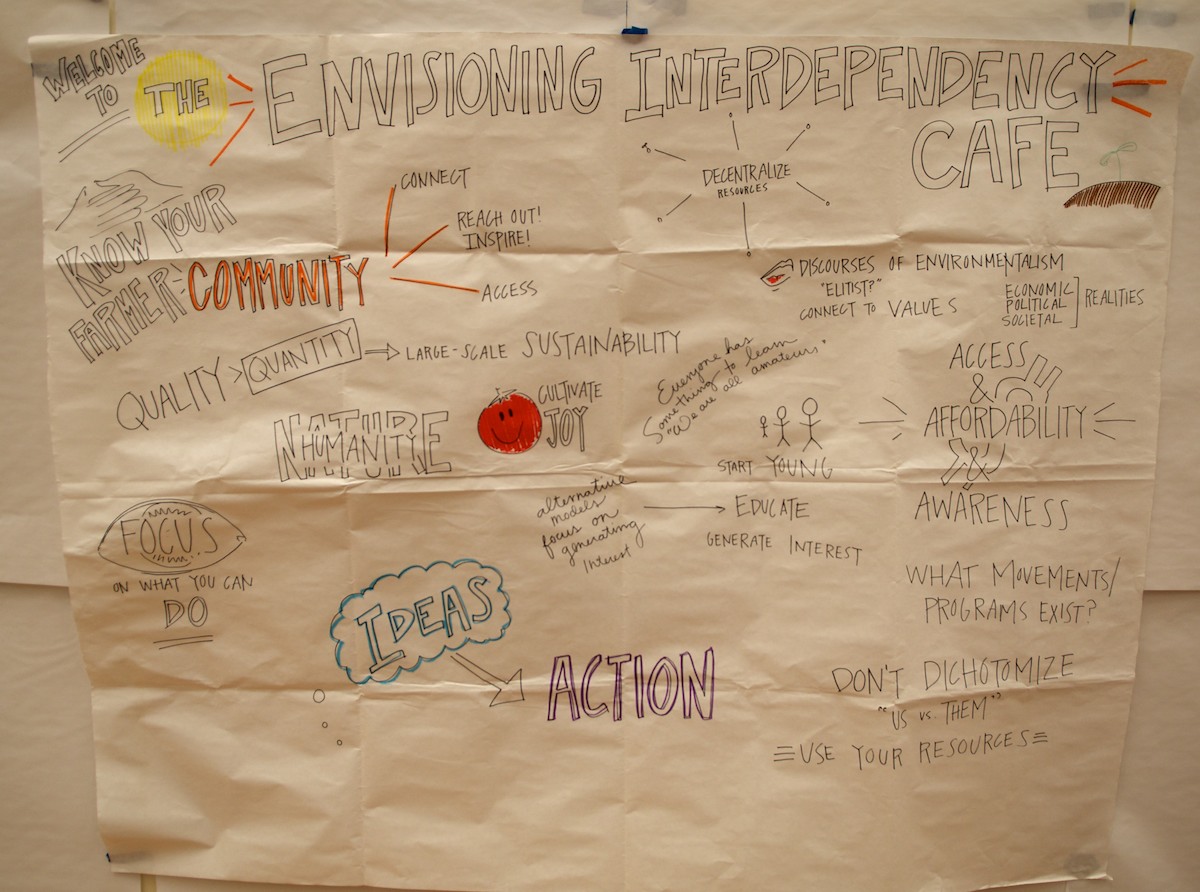 WELCOME
TO
THE
ENVISIONING INTERDEPENDENCY
CAFE
KNOW YOUR
FARMER
COMMUNITY
CONNECT
REACH OUT!
INSPIRE!
ACCESS
DECENTRALIZE
RESOURCES
DISCOURSES OF ENVIRONMENTALISM
"ELITIST?"
CONNECT TO VALUES
ECONOMIC
POLITICAL
SOCIETAL
REALITIES
QUALITY > QUANTITY
LARGE-SCALE SUSTAINABILITY
NATURE
HUMANITY
CULTIVATE
JOY
Everyone has
something to learn
"We are all amateurs"
START YOUNG
ACCESS
&
AFFORDABILITY
&
AWARENESS
alternative
models
focus on
generating
Interest
EDUCATE
GENERATE INTEREST
FOCUS
ON WHAT YOU CAN
DO
IDEAS
ACTION
WHAT MOVEMENTS/
PROGRAMS EXIST?
DON'T DICHOTOMIZE
"US vs. THEM"
USE YOUR RESOURCES